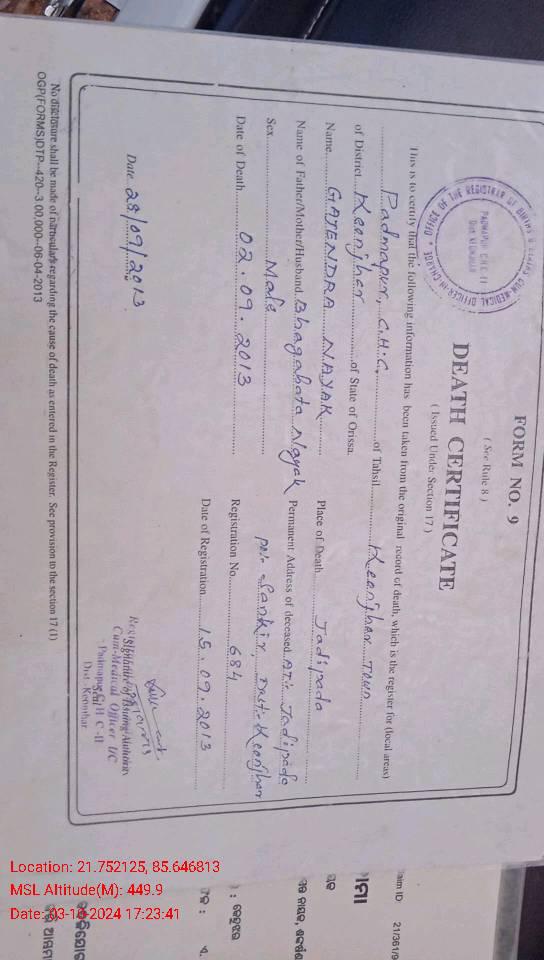 FORM NO. 9
( See Rule 8 )
DEATH CERTIFICATE
( Issued Under Section 17 )
OFFICE OF THE REGISTRAR OF BIRTHS & DEATHS CUM-MEDICAL OFFICER-IN CHARGE
PADMAPUR CHC II
Dist. KEONJHAR
This is to certify that the following information has been taken from the original record of death, which is the register for (local areas)
Padmapur, C.H.C. of Tahsil Keonjhar Town
of District Keonjhar of State of Orissa.
Name GAJENDRA NAYAK Place of Death Jadipada
Name of Father/Mother/Husband Bhagabata Nayak Permanent Address of deceased AT:- Jadipada
PO:- Sankir, Dist:- Keonjhar
Sex Male
Registration No. 684
Date of Death 02.09.2013
Date of Registration 15.09.2013
Date 28/09/2013
Signature of Issuing Authority
Cum-Medical Officer I/C
Padmapur C H C-II
Seal
Dist-Keonjhar
No disclosure shall be made of particulars regarding the cause of death as entered in the Register. See provision to the section 17 (1)
OGP(FORMS)DTP--420--3,00,000--06-04-2013
aim ID 21/361/9
Location: 21.752125, 85.646813
MSL Altitude(M): 449.9
Date: 03-10-2024 17:23:41